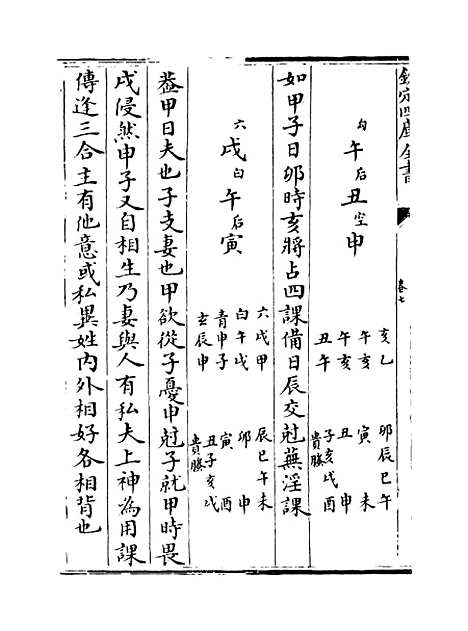 欽定四庫全書
卷七
勾午后丑空申
亥乙
午亥
午亥
丑午
卯辰巳午
寅 未
丑 申
子亥戌酉
貴螣
如甲子日卯時亥將占四課備日辰交尅蕪淫課
六戌白午后寅
六戌甲
白午戌
青申子
玄辰申
辰巳午未
卯 申
寅 酉
丑子亥戌
貴螣
葢甲日夫也子支妻也甲欲從子憂申尅子就甲時畏
戌侵然申子又自相生乃妻與人有私夫上神為用課
傳逢三合主有他意或私異姓内外相好各相背也